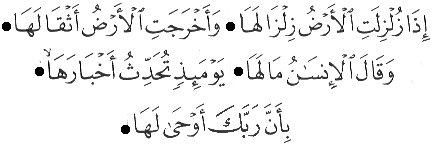 إِذَا زُلْزِلَتِ ٱلْأَرْضُ زِلْزَالَهَا • وَأَخْرَجَتِ ٱلْأَرْضُ أَثْقَالَهَا •
وَقَالَ ٱلْإِنسَـٰنُ مَالَهَا • يَوْمَئِذٍ تُحَدِّثُ أَخْبَارَهَا •
بِأَنَّ رَبَّكَ أَوْحَىٰ لَهَا •